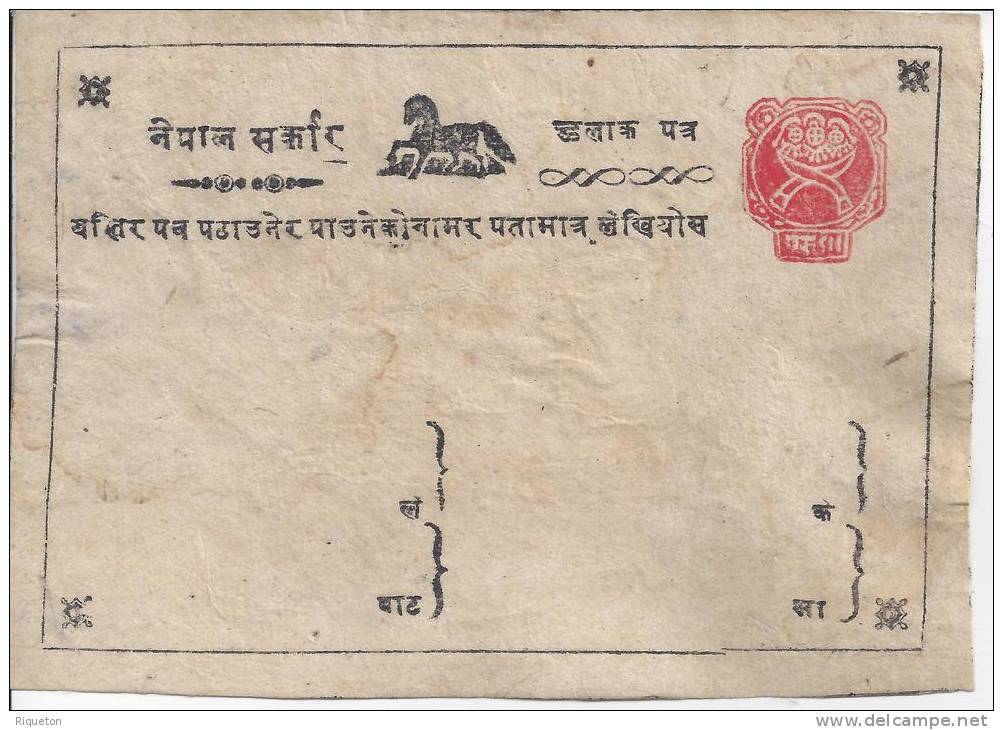 नेपाल सर्कार
हुलाक पत्र
यस्तिर पत्र पठाउनेर पाउनेकोनामर पतामात्र लेखियोस
लं
कं
बाट
मा
Riqueton
delcampe.net